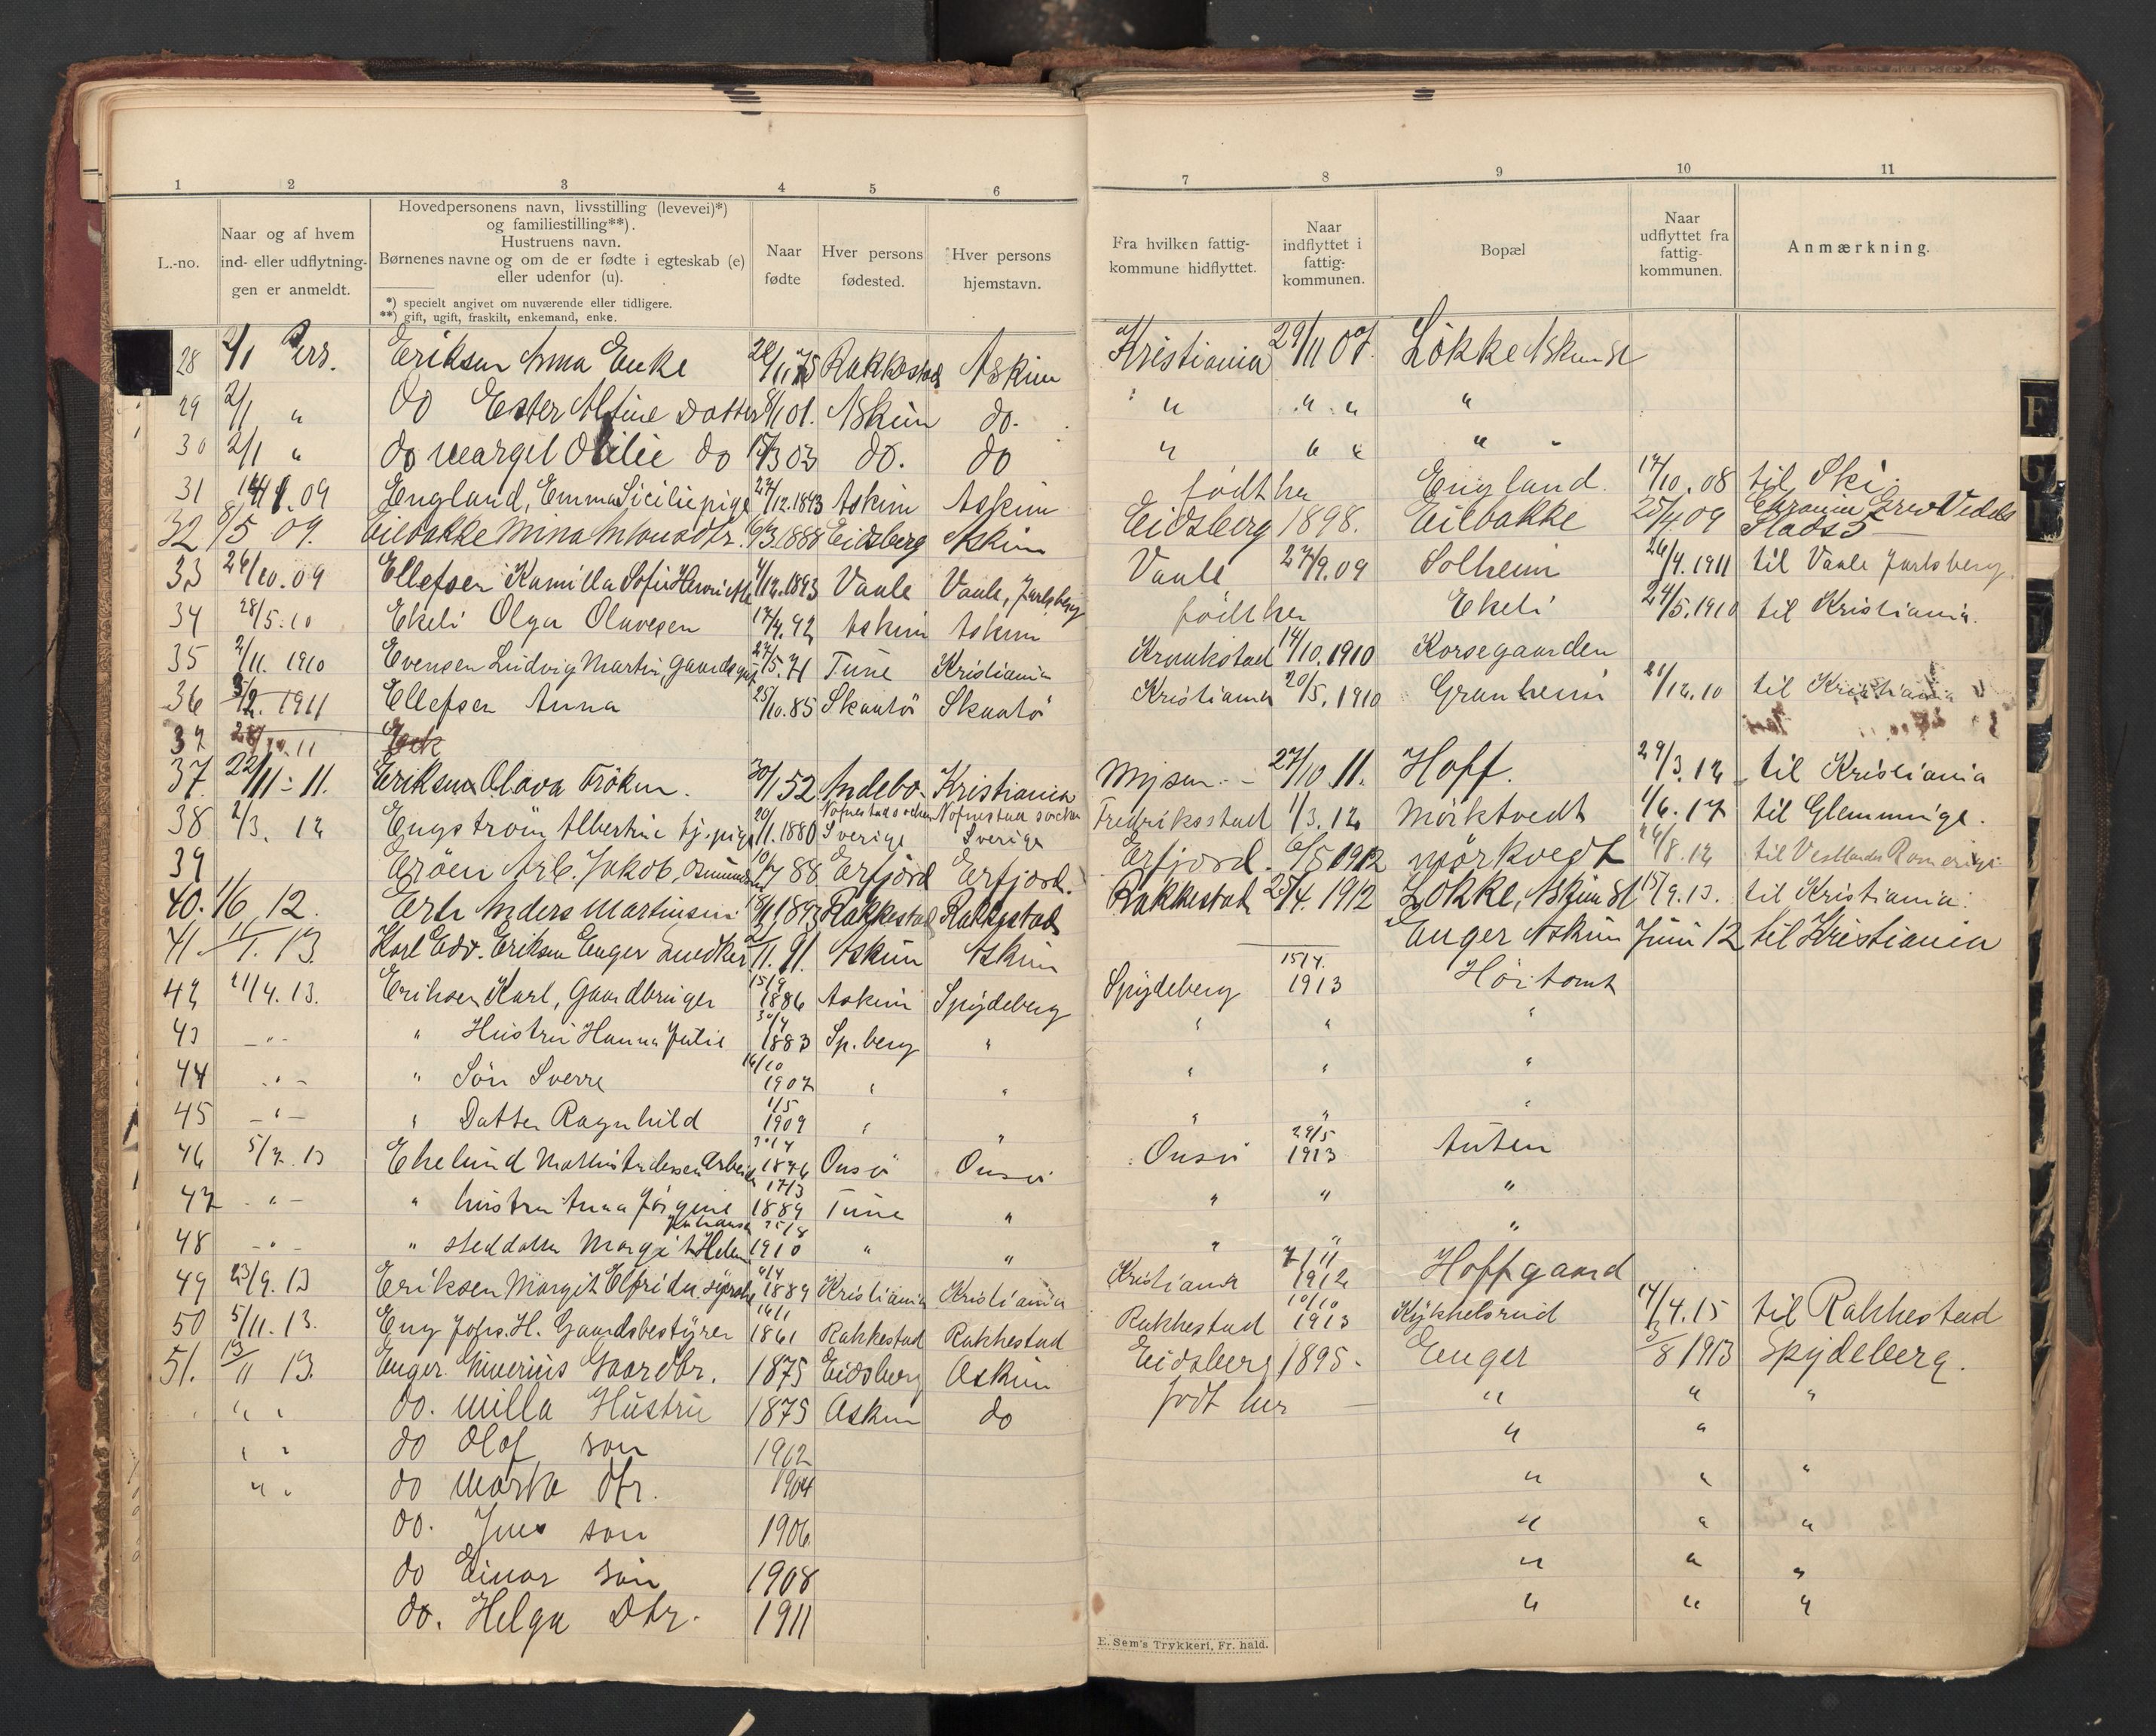 1 2 3 4 5 6 7 8 9 10 11
L.-no.
Naar og af hvem ind- eller udflytningen er anmeldt.
Hovedpersonens navn, livsstilling (levevei)*) og familiestilling**).
Hustruens navn.
Børnenes navne og om de er fødte i egteskab (e) eller udenfor (u).
*) specielt angivet om nuværende eller tidligere.
**) gift, ugift, fraskilt, enkemand, enke.
Naar fødte
Hver persons fødested.
Hver persons hjemstavn.
Fra hvilken fattigkommune hidflyttet.
Naar indflyttet i fattigkommunen.
Bopæl
Naar udflyttet fra fattigkommunen.
Anmærkning.
28 2/1 Pers. Eriksen Anna Enke Rakkestad Askim Kristiania 29/11 07. Løkke Askim St
29 2/1 " Do Ester Alfine Datter 8/1 01. Askim do. " " " "
30 2/1 " do Margit Otilie do 17/3 03 do. do " " " " "
31 09 England, Emma Sicilie pige 27/12.1893 Askim Askim født her England. 17/10.08 til Ski.
32 8/5 09. Eilbakke Mina 6/3 1888 Eidsberg Askim Eidsberg 1898. Eilbakke 25/4 09
33 26/10.09 Ellefsen Kamilla Sofie Henriette 4/12.1893 Vaale Vaale, Jarlsberg Vaale 27/9.09 Solheim 26/4.1911 til Vaale Jarlsberg
34 28/5.10 Ekeli Olga Olavesen 17/4.92 Askim Askim født her Ekeli 24/5.1910 til Kristiania.
35 2/11. 1910 Evensen Ludvig Martin, 27/5.71 Tune Kristiania Kraakstad 14/10.1910 Korsegaarden
36 3/2. 1911 Ellefsen Anna 25/10.85 Skaatö Skaatö Kristiania 20/5.1910 Granheim 21/12.10 til Kristiania
37 11
37. 22/11 - 11. Eriksen Olava Frøken. 30/1 52 Andebo Kristiania Mysen. - 27/10 11. Hoff. 29/3.12 til Kristiania
38 2/3. 12 Engström Albertine tj.pige 20/1.1880 Sverige Sverige Fredriksstad 1/3.12 Mörktvedt 1/6.17 til Glemminge.
39 Erøen Arb. Jakob, 88 Erfjord Erfjord. Erfjord. 6/5 1912 Mørkvedt 26/8.12
40. 1/6 12. Erte Anders Martinsen 1893 Rakkestad Rakkestad Rakkestad 25/4. 1912 Løkke, Askim St 15/9.13. til Kristiania.
41 11/1. 13. Karl Edv. Eriksen Enger Snedker 2/1.91. Askim Askim Enger Askim Juni 12 til Kristiania
42 21/4.13. Eriksen Karl, Gaardbruger 15/9 1886 Askim Spydeberg Spydeberg 15/4. 1913 Höitomt
43 - " - " Hustru Hanna Julie 30/4 1883 Sp.berg " " " "
44 - " - " Sön Sverre 16/10 1907 " " " " "
45 - " - " Datter Ragnhild 1/5 1909 " " " " "
46 5/7.13 Ekelund Mathis Andersen Arbeider Onsö Onsö Onsö 29/5 1913 Auten
47 - " - " hustru Anna Jörgine 17/3 1889 Tune " " " "
48 - " - " steddatter Margit Helene Johansen 25/8 1910 " " " " "
49 23/9.13 Eriksen Margit Elfrida. 1889 Kristiania Kristiania Kristiania 7/11 1912 Hoffgaard
50 5/11.13. Eng Johs. H. Gaardsbestyrer 16/11 1861 Rakkestad Rakkestad Rakkestad 10/10 1913 Kykkelsrud 17/4.15 til Rakkestad
51. 13/11 13. Enger. Gaardbr. 1875 Eidsberg Askim Eidsberg 1895. Enger 3/8 1913 Spydeberg.
" " do. Milla Hustru 1875 Askim do født her " " "
" " do Olof søn 1902 " "
" " do Marta Dtr. 1904 " " "
do. Jens søn 1906 " " "
do Einar søn 1908 " " "
do. Helga Dtr. 1911 " " "
E. Sem's Trykkeri, Fr. hald.
F